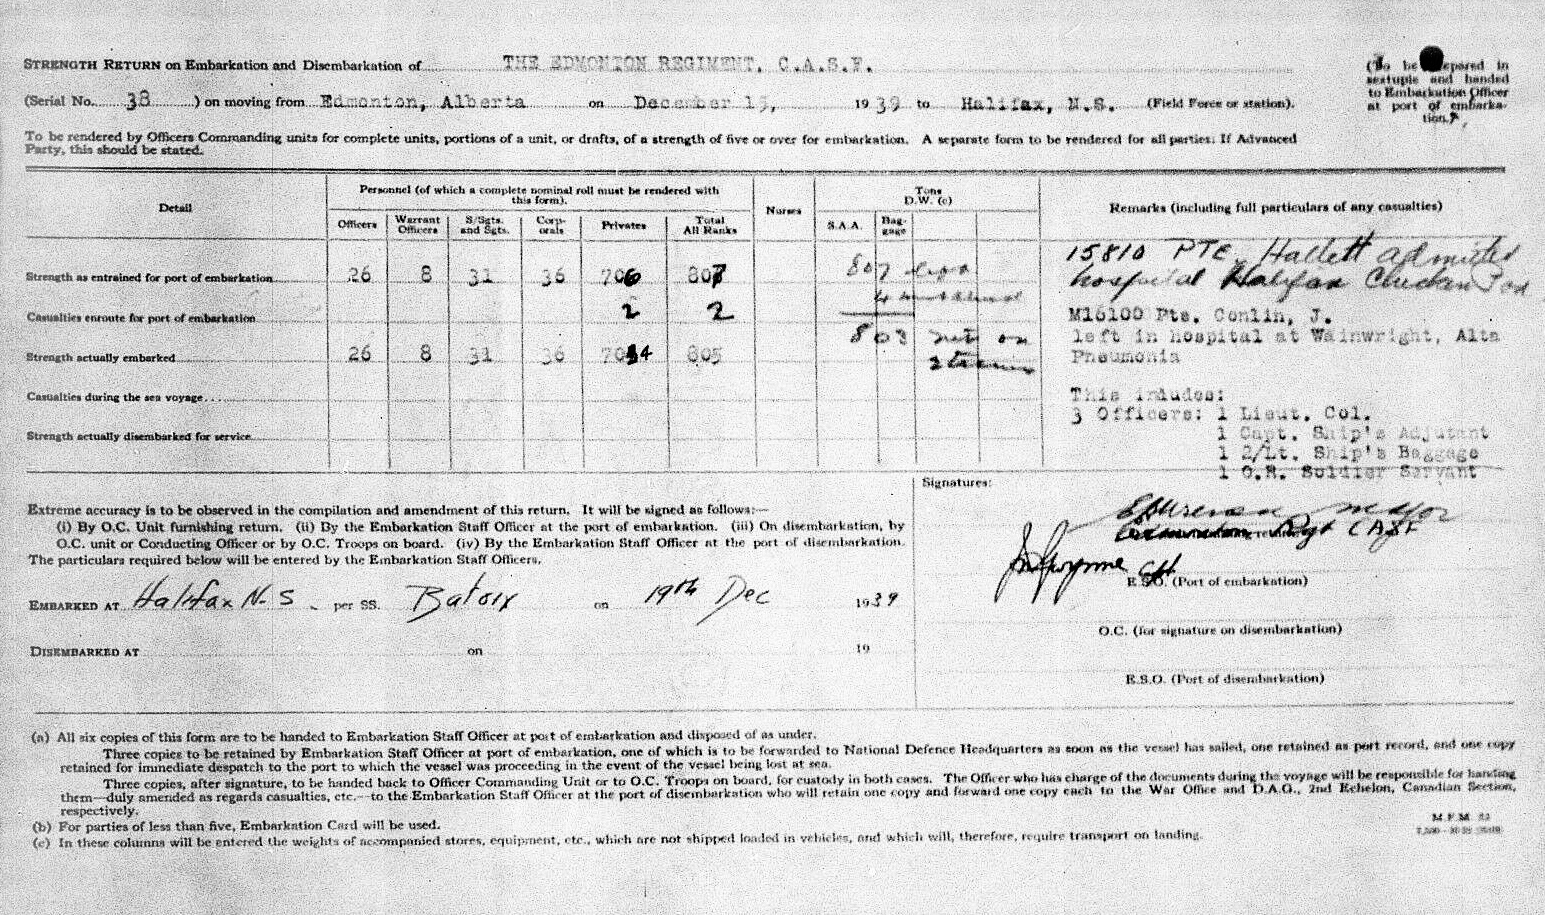 STRENGTH RETURN on Embarkation and Disembarkation of THE EDMONTON REGIMENT, C.A.S.F.
(To be prepared in sextuple and handed to Embarkation Officer at port of embarkation.)
(Serial No. 38 ) on moving from Edmonton, Alberta on December 15, 1939 to Halifax, N.S. (Field Force or station).
To be rendered by Officers Commanding units for complete units, portions of a unit, or drafts, of a strength of five or over for embarkation. A separate form to be rendered for all parties: If Advanced
Party, this should be stated.
Detail
Personnel (of which a complete nominal roll must be rendered with
this form).
Nurses
Tons
D.W. (c)
Remarks (including full particulars of any casualties)
Officers Warrant Officers S/Sgts. and Sgts. Corporals Privates Total All Ranks S.A.A. Baggage
Strength as entrained for port of embarkation 26 8 31 36 706 807
Casualties enroute for port of embarkation 2 2
Strength actually embarked 26 8 31 36 704 805
Casualties during the sea voyage...
Strength actually disembarked for service
807
4
803 net on
15810 PTE. Hallett admitted
hospital Halifax Chicken Pox
M16100 Pte. Conlin, J.
left in hospital at Wainwright, Alta
Pneumonia
This inludes:
3 Officers: 1 Lieut. Col.
1 Capt. Ship's Adjutant
1 2/Lt. Ship's Baggage
1 O.R. Soldier Servant
Extreme accuracy is to be observed in the compilation and amendment of this return. It will be signed as follows:—
(i) By O.C. Unit furnishing return. (ii) By the Embarkation Staff Officer at the port of embarkation. (iii) On disembarkation, by
O.C. unit or Conducting Officer or by O.C. Troops on board. (iv) By the Embarkation Staff Officer at the port of disembarkation.
The particulars required below will be entered by the Embarkation Staff Officers.
EMBARKED AT Halifax N.S. per SS. Batory on 19th Dec 1939
DISEMBARKED AT on 19
Signatures:
Major
Edmonton Regt CASF
E.S.O. (Port of embarkation)
O.C. (for signature on disembarkation)
E.S.O. (Port of disembarkation)
(a) All six copies of this form are to be handed to Embarkation Staff Officer at port of embarkation and disposed of as under.
Three copies to be retained by Embarkation Staff Officer at port of embarkation, one of which is to be forwarded to National Defence Headquarters as soon as the vessel has sailed, one retained as port record, and one copy
retained for immediate despatch to the port to which the vessel was proceeding in the event of the vessel being lost at sea.
Three copies, after signature, to be handed back to Officer Commanding Unit or to O.C. Troops on board, for custody in both cases. The Officer who has charge of the documents during the voyage will be responsible for handing
them—duly amended as regards casualties, etc.—to the Embarkation Staff Officer at the port of disembarkation who will retain one copy and forward one copy each to the War Office and D.A.G., 2nd Echelon, Canadian Section,
respectively.
(b) For parties of less than five, Embarkation Card will be used.
(c) In these columns will be entered the weights of accompanied stores, equipment, etc., which are not shipped loaded in vehicles, and which will, therefore, require transport on landing.
M.F.M.